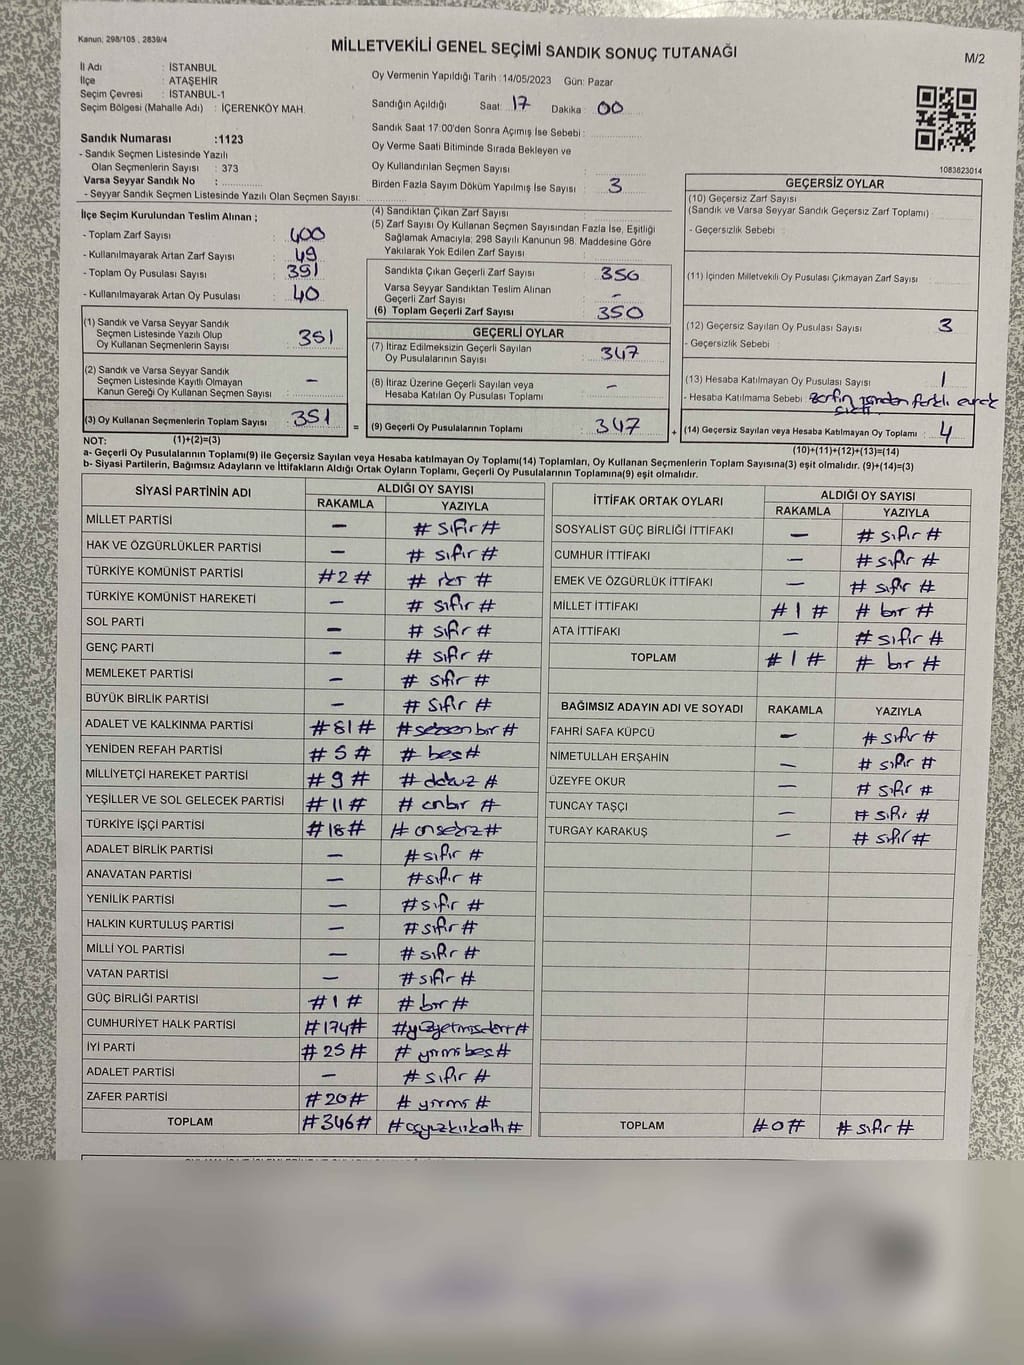 Kanun: 298/105 , 2839/4
MİLLETVEKİLİ GENEL SEÇİMİ SANDIK SONUÇ TUTANAĞI
M/2
İl Adı : İSTANBUL
İlçe : ATAŞEHİR
Seçim Çevresi : İSTANBUL-1
Seçim Bölgesi (Mahalle Adı) : İÇERENKÖY MAH.
Sandık Numarası :1123
- Sandık Seçmen Listesinde Yazılı
Olan Seçmenlerin Sayısı : 373
Varsa Seyyar Sandık No :
- Seyyar Sandık Seçmen Listesinde Yazılı Olan Seçmen Sayısı:
Oy Vermenin Yapıldığı Tarih :14/05/2023 Gün: Pazar
Sandığın Açıldığı Saat: 17 Dakika 00
Sandık Saat 17:00'den Sonra Açımış İse Sebebi :
Oy Verme Saati Bitiminde Sırada Bekleyen ve
Oy Kullandırılan Seçmen Sayısı :
Birden Fazla Sayım Döküm Yapılmış İse Sayısı : 3
1083623014
İlçe Seçim Kurulundan Teslim Alınan ;
- Toplam Zarf Sayısı : 400
- Kullanılmayarak Artan Zarf Sayısı : 49
- Toplam Oy Pusulası Sayısı : 391
- Kullanılmayarak Artan Oy Pusulası : 40
(1) Sandık ve Varsa Seyyar Sandık
Seçmen Listesinde Yazılı Olup
Oy Kullanan Seçmenlerin Sayısı : 351
(2) Sandık ve Varsa Seyyar Sandık
Seçmen Listesinde Kayıtlı Olmayan
Kanun Gereği Oy Kullanan Seçmen Sayısı : -
(3) Oy Kullanan Seçmenlerin Toplam Sayısı : 351
(4) Sandıktan Çıkan Zarf Sayısı :
(5) Zarf Sayısı Oy Kullanan Seçmen Sayısından Fazla İse, Eşitliği
Sağlamak Amacıyla; 298 Sayılı Kanunun 98. Maddesine Göre
Yakılarak Yok Edilen Zarf Sayısı :
Sandıkta Çıkan Geçerli Zarf Sayısı : 350
Varsa Seyyar Sandıktan Teslim Alınan
Geçerli Zarf Sayısı : -
(6) Toplam Geçerli Zarf Sayısı : 350
GEÇERLİ OYLAR
(7) İtiraz Edilmeksizin Geçerli Sayılan
Oy Pusulalarının Sayısı : 347
(8) İtiraz Üzerine Geçerli Sayılan veya
Hesaba Katılan Oy Pusulası Toplamı : -
= (9) Geçerli Oy Pusulalarının Toplamı : 347 +
GEÇERSİZ OYLAR
(10) Geçersiz Zarf Sayısı
(Sandık ve Varsa Seyyar Sandık Geçersiz Zarf Toplamı) :
- Geçersizlik Sebebi :
(11) İçinden Milletvekili Oy Pusulası Çıkmayan Zarf Sayısı :
(12) Geçersiz Sayılan Oy Pusulası Sayısı : 3
- Geçersizlik Sebebi :
(13) Hesaba Katılmayan Oy Pusulası Sayısı : 1
- Hesaba Katılmama Sebebi : zarfın içinden farklı evrak
çıktı
(14) Geçersiz Sayılan veya Hesaba Katılmayan Oy Toplamı : 4
NOT: (1)+(2)=(3)
(10)+(11)+(12)+(13)=(14)
a- Geçerli Oy Pusulalarının Toplamı(9) ile Geçersiz Sayılan veya Hesaba katılmayan Oy Toplamı(14) Toplamları, Oy Kullanan Seçmenlerin Toplam Sayısına(3) eşit olmalıdır. (9)+(14)=(3)
b- Siyasi Partilerin, Bağımsız Adayların ve İttifakların Aldığı Ortak Oyların Toplamı, Geçerli Oy Pusulalarının Toplamına(9) eşit olmalıdır.
SİYASİ PARTİNİN ADI ALDIĞI OY SAYISI
RAKAMLA YAZIYLA
MİLLET PARTİSİ - # sıfır #
HAK VE ÖZGÜRLÜKLER PARTİSİ - # sıfır #
TÜRKİYE KOMÜNİST PARTİSİ #2# # iki #
TÜRKİYE KOMÜNİST HAREKETİ - # sıfır #
SOL PARTİ - # sıfır #
GENÇ PARTİ - # sıfır #
MEMLEKET PARTİSİ - # sıfır #
BÜYÜK BİRLİK PARTİSİ - # sıfır #
ADALET VE KALKINMA PARTİSİ #81# #seksenbir #
YENİDEN REFAH PARTİSİ #5# # beş#
MİLLİYETÇİ HAREKET PARTİSİ #9# # dokuz #
YEŞİLLER VE SOL GELECEK PARTİSİ #11# # onbir #
TÜRKİYE İŞÇİ PARTİSİ #18# # onsekiz #
ADALET BİRLİK PARTİSİ - # sıfır #
ANAVATAN PARTİSİ - #sıfır #
YENİLİK PARTİSİ - #sıfır #
HALKIN KURTULUŞ PARTİSİ - #sıfır #
MİLLİ YOL PARTİSİ - # sıfır #
VATAN PARTİSİ - #sıfır #
GÜÇ BİRLİĞİ PARTİSİ #1# # bir #
CUMHURİYET HALK PARTİSİ #174# #yüzyetmişdört #
İYİ PARTİ #25# # yirmibeş#
ADALET PARTİSİ - # sıfır #
ZAFER PARTİSİ #20# # yirmi #
TOPLAM #346# #üçyüzkırkaltı #
İTTİFAK ORTAK OYLARI ALDIĞI OY SAYISI
RAKAMLA YAZIYLA
SOSYALİST GÜÇ BİRLİĞİ İTTİFAKI - # sıfır #
CUMHUR İTTİFAKI - # sıfır #
EMEK VE ÖZGÜRLÜK İTTİFAKI - # sıfır #
MİLLET İTTİFAKI #1# # bir #
ATA İTTİFAKI - # sıfır #
TOPLAM #1# # bir #
BAĞIMSIZ ADAYIN ADI VE SOYADI RAKAMLA YAZIYLA
FAHRİ SAFA KÜPCÜ - # sıfır #
NİMETULLAH ERŞAHİN - # sıfır #
ÜZEYFE OKUR - # sıfır #
TUNCAY TAŞÇI - # sıfır #
TURGAY KARAKUŞ - # sıfır #
TOPLAM #0# # sıfır #